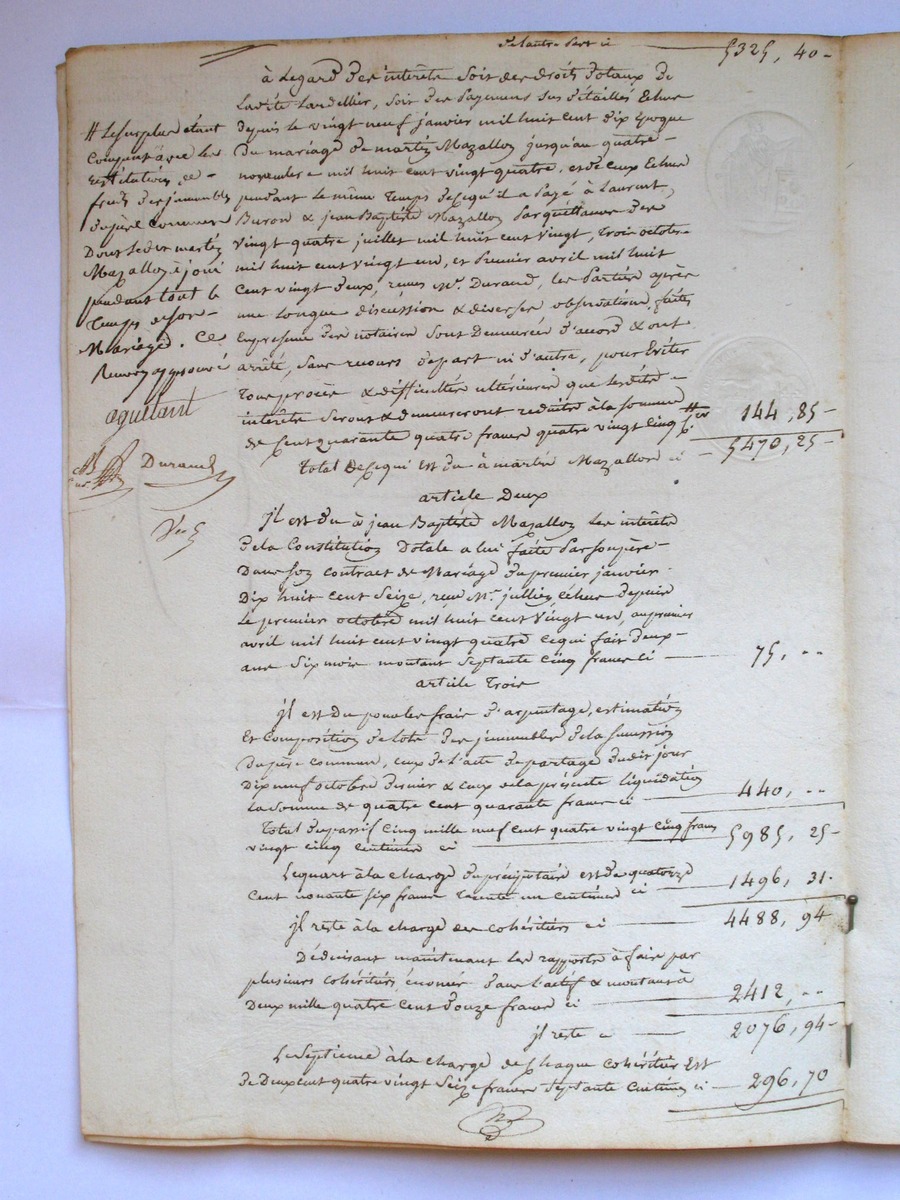 de lautre part ci 5325, 40
à Legard des intérêts soit des droits dotaux de
Ladite Lardellier, soit des payemens sus détaillés Echus
depuis le vingt neuf janvier mil huit cent dix époque
du mariage de martin Mazalloz jusqu'au quatre
novembre mil huit cent vingt quatre, et de ceux Echus
pendant le même temps de ce qu'il a payé à Laurent,
Buron & jean Baptiste Mazalloz par quittances des
vingt quatre juillet mil huit cent vingt, trois octobre
mil huit cent vingt un, et premier avril mil huit
cent vingt deux, reçues Me. Durand, les Parties après
une longue discussion & diverses observations faites
En présence des notaires sont Demeurées d'accord & ont
arrêté, sans recours de part ni d'autre, pour Eviter
tous procès & difficultés ultérieures que lesdits
intérêts seront & demeureront réduits à la somme
de Cent quarante quatre francs quatre vingt cinq 144, 85
Total de ce qui Est du à martin Mazalloz ci 5470, 25
# Le surplus étant
Compensé avec les
restitutions de
fruits des immeubles
du père commun
Dont ledit martin
Mazalloz a joui
pendant tout le
temps de son
Mariage. Ce
Renvoy approuvé
aguetant
Durand
article Deux
jl est du à jean Baptiste Mazalloz les intérêts
de la Constitution Dotale a lui faite par son père
Dans son contract de Mariage du premier janvier
Dix huit cent Seize, reçu Me. jullien Echus depuis
Le premier octobre mil huit cent vingt un, au premier
avril mil huit cent vingt quatre ce qui fait deux
ans six mois montant septante cinq francs ci 75, ..
article Trois
jl est Du pour les frais d'arpentage, estimation
Et Composition de lots des jmmeubles de la succession
du père commun, ceux de l'acte de partage dudit jour
Dix neuf octobre dernier & ceux de la présente liquidation
La somme de quatre cent quarante francs ci 440, ..
Total du passif cinq mille neuf cent quatre vingt cinq francs
vingt cinq centimes ci 5985, 25
Le quart à la charge du préciputaire est de quatorze
cent nonante six francs trente un centimes ci 1496, 31
jl reste à la charge des cohéritiers ci 4488, 94
Déduisant maintenant les rapports à faire par
plusieurs cohéritiers énoncés dans l'actif & montant à
Deux mille quatre cent douze francs ci 2412, ..
jl reste ci 2076, 94
Le Septieme à la charge de Chaque cohéritier Est
de Deux cent quatre vingt Seize francs septante Centimes ci 296, 70